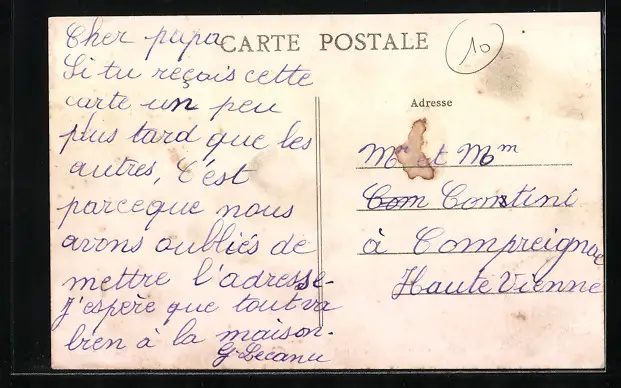 Cher papa
CARTE POSTALE
10
Si tu reçois cette
carte un peu
plus tard que les
autres, C'est
parceque nous
avons oubliés de
mettre l'adresse-
J'espère que tout va
bien à la maison.
G Lecanu
Adresse
Mr et Mm
Com Constini
à Compreignac
Haute Vienne